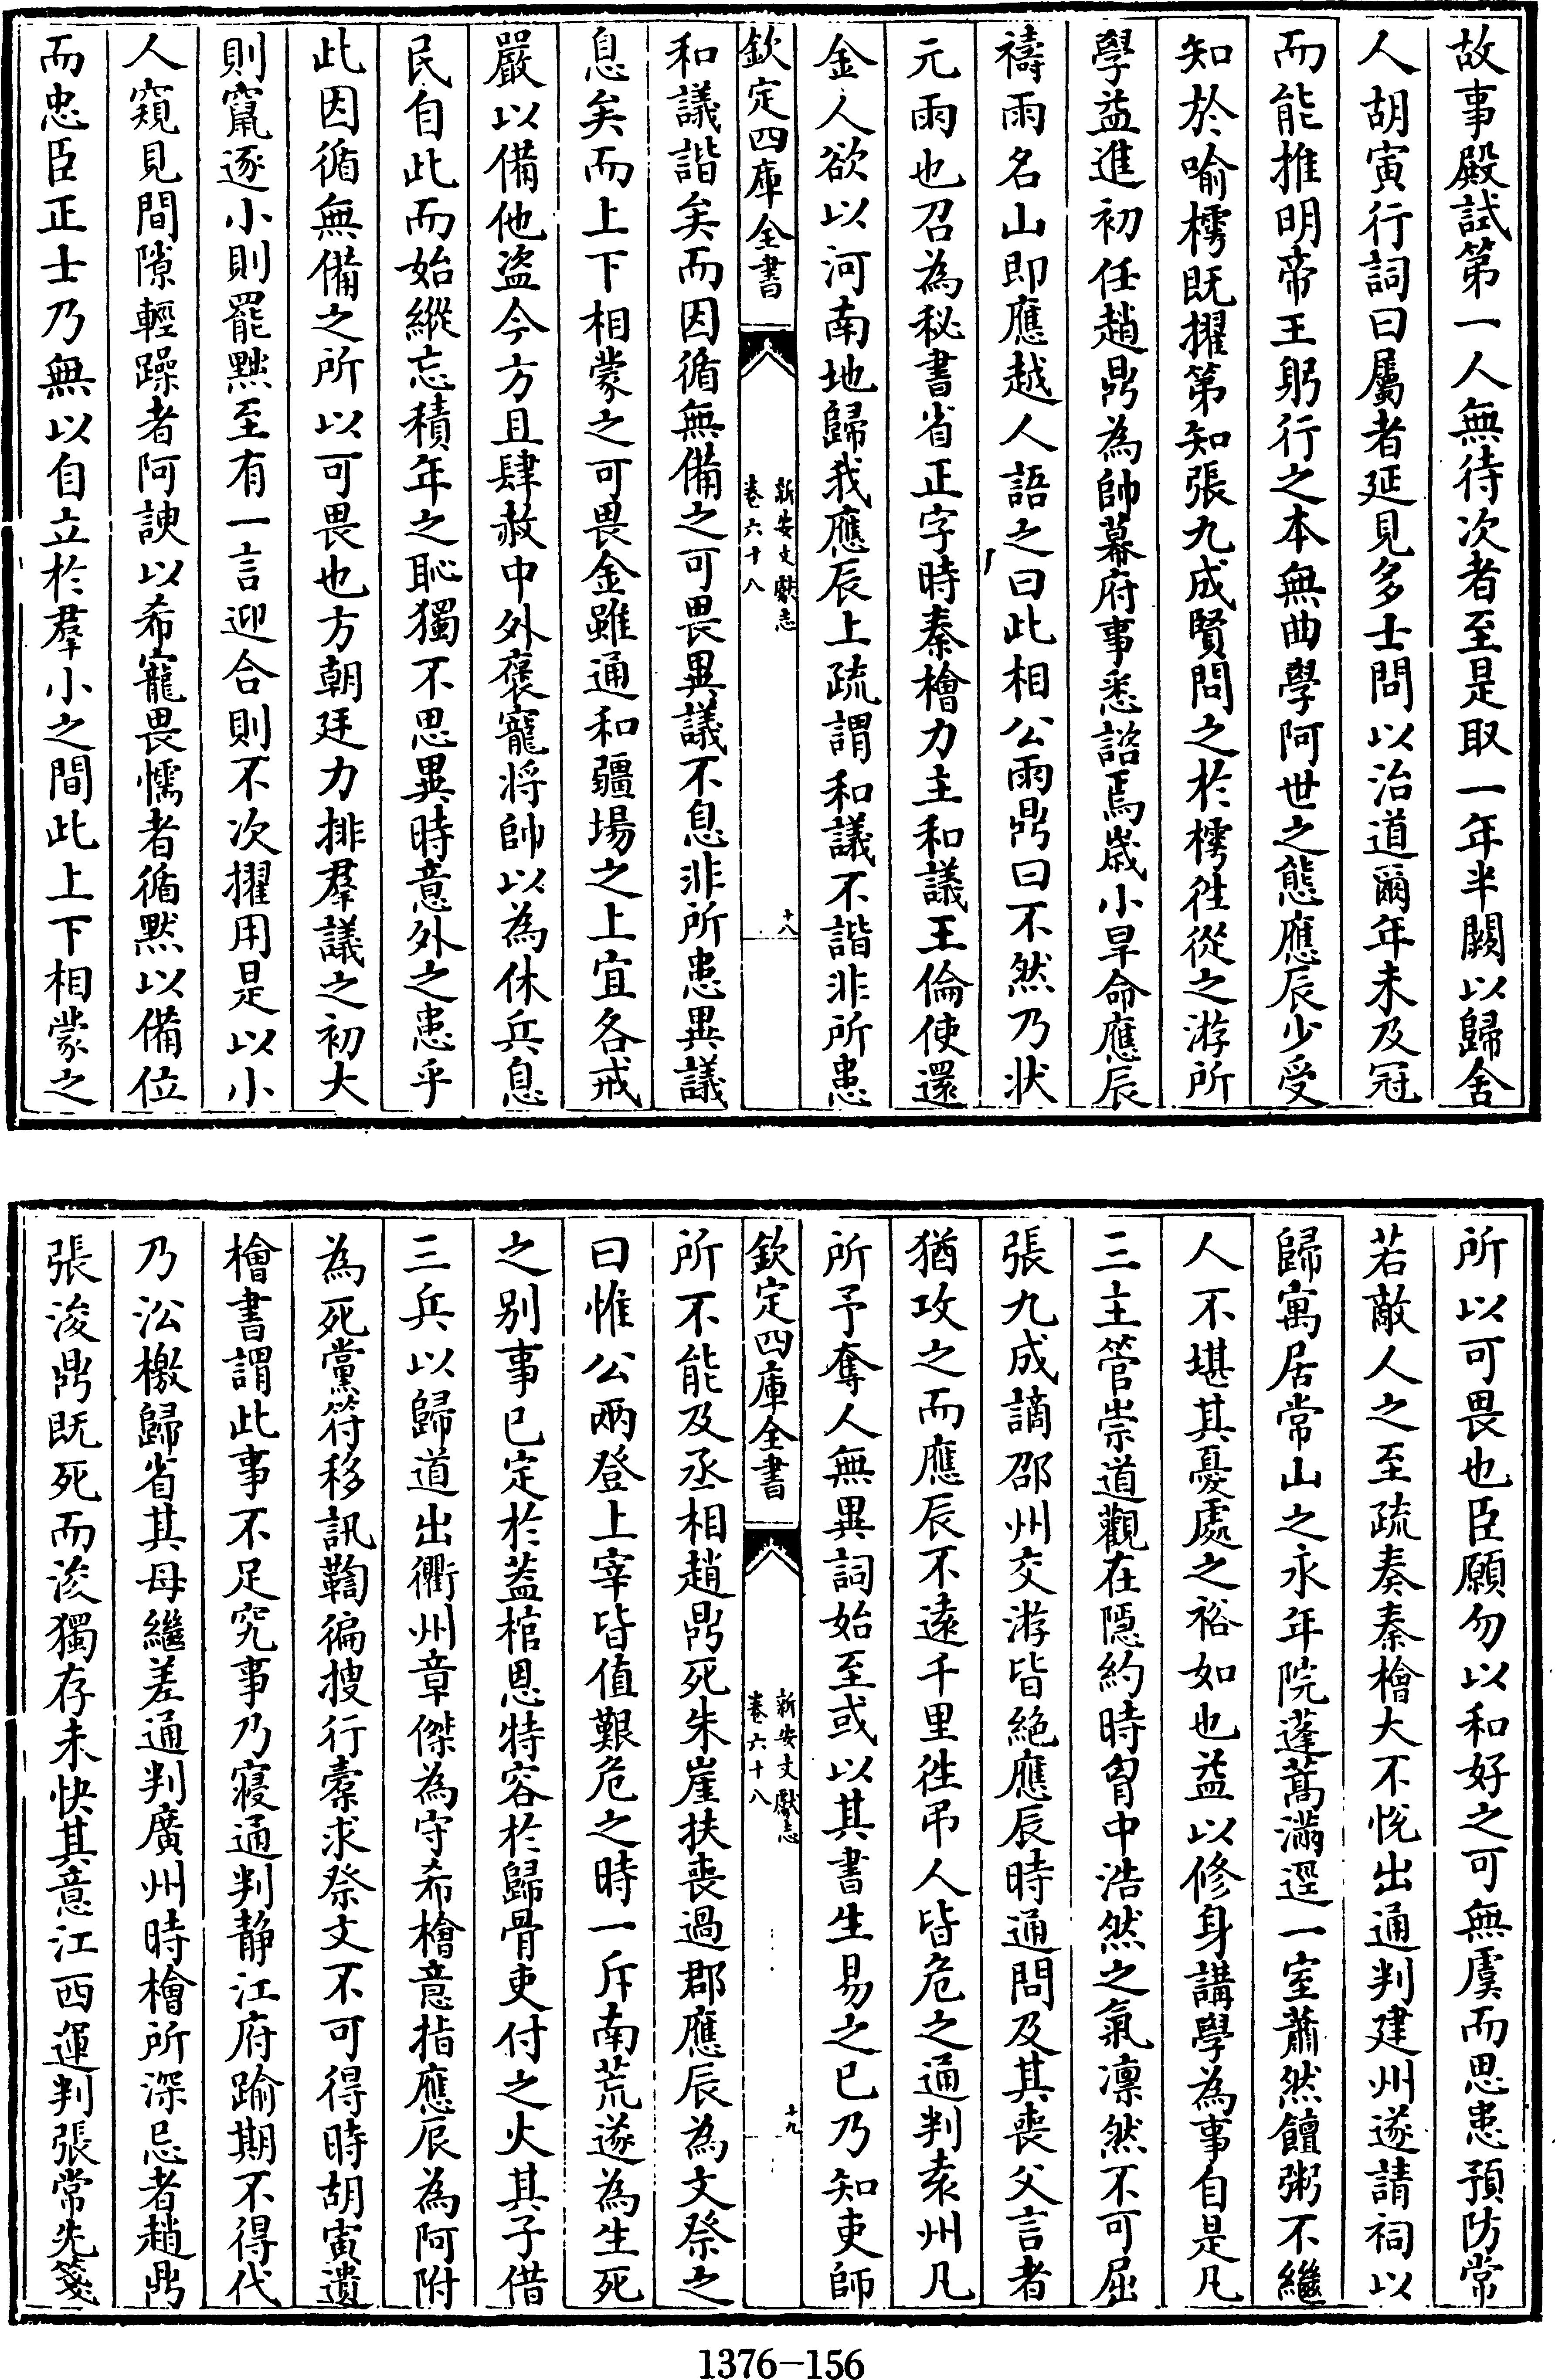 故事殿試第一人無待次者至是取一年半闕以歸舍
人胡寅行詞曰屬者延見多士問以治道爾年未及冠
而能推明帝王躬行之本無曲學阿世之態應辰少受
知於喻樗既擢第知張九成賢問之於樗徃從之游所
學益進初任趙鼎為帥幕府事悉諮焉歲小旱命應辰
禱雨名山即應越人語之曰此相公雨鼎曰不然乃狀
元雨也召為秘書省正字時秦檜力主和議王倫使還
金人欲以河南地歸我應辰上疏謂和議不諧非所患
欽定四庫全書
新安文獻志
卷六十八
十八
和議諧矣而因循無備之可畏異議不息非所患異議
息矣而上下相蒙之可畏金雖通和疆場之上宜各戒
嚴以備他盜今方且肆赦中外褒寵將帥以為休兵息
民自此而始縱忘積年之恥獨不思異時意外之患乎
此因循無備之所以可畏也方朝廷力排羣議之初大
則竄逐小則罷黜至有一言迎合則不次擢用是以小
人窺見間隙輕躁者阿諛以希寵畏懦者循黙以備位
而忠臣正士乃無以自立於羣小之間此上下相蒙之
所以可畏也臣願勿以和好之可無虞而思患預防常
若敵人之至疏奏秦檜大不悅出通判建州遂請祠以
歸寓居常山之永年院蓬蒿滿逕一室蕭然饘粥不繼
人不堪其憂處之裕如也益以修身講學為事自是凡
三主管崇道觀在隱約時胷中浩然之氣凛然不可屈
張九成謫邵州交游皆絕應辰時通問及其喪父言者
猶攻之而應辰不遠千里徃弔人皆危之通判袁州凡
所予奪人無異詞始至或以其書生易之已乃知吏師
欽定四庫全書
新安文獻志
卷六十八
十九
所不能及丞相趙鼎死朱崖扶喪過郡應辰為文祭之
曰惟公兩登上宰皆值艱危之時一斥南荒遂為生死
之别事已定於葢棺恩特容於歸骨吏付之火其子借
三兵以歸道出衢州章傑為守希檜意指應辰為阿附
為死黨符移訊鞫徧搜行橐求祭文不可得時胡寅遺
檜書謂此事不足究事乃寢通判靜江府踰期不得代
乃沿檄歸省其母繼差通判廣州時檜所深忌者趙鼎
張浚鼎既死而浚獨存未快其意江西運判張常先箋
1376-156